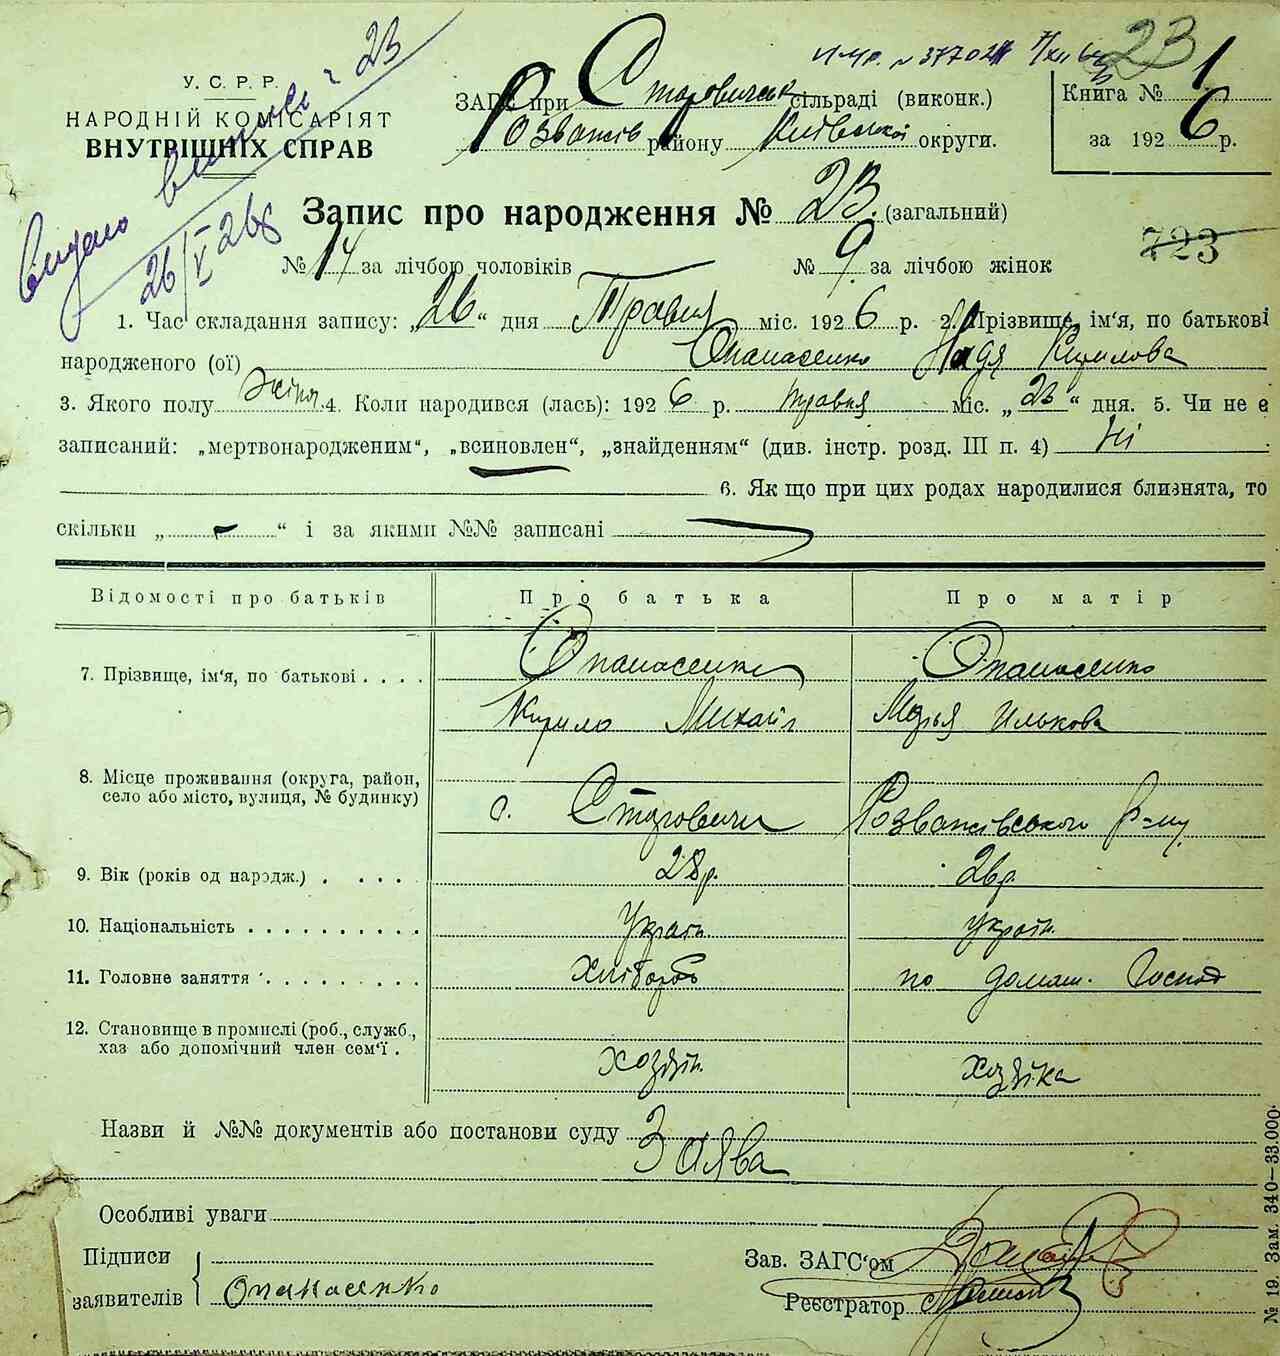 Видано виписі ч 23
26/V 26
23
У. С. Р. Р.
НАРОДНІЙ КОМІСАРІЯТ
ВНУТРІШНІХ СПРАВ
ЗАГС при Старовичськ сільраді (виконк.)
Розважів району Київської округи.
Книга № 1
за 1926 р.
Запис про народження № 23. (загальний)
723
№ 14 за лічбою чоловіків № 9 за лічбою жінок
1. Час складання запису: „26“ дня Травня міс. 1926 р. 2. Прізвище, ім'я, по батькові
народженого (ої) Опанасенко Надя Кирилова
3. Якого полу жіноч. 4. Коли народився (лась): 1926 р. травня міс. „23“ дня. 5. Чи не є
записаний: „мертвонародженим“, „всиновлен“, „знайденням“ (див. інстр. розд. III п. 4) Ні
6. Як що при цих родах народилися близнята, то
скільки „ - “ і за якими №№ записані
Відомості про батьків Про батька Про матір
7. Прізвище, ім'я, по батькові . . . . Опанасенко Опанасенко
Кирило Михайл Марья Илькова
8. Місце проживання (округа, район,
село або місто, вулиця, № будинку) с. Старовичи Розважівського р-ну
9. Вік (років од народж.) . . . . 28р. 26р.
10. Національність . . . . . . . . . . Украъ. україн.
11. Головне заняття . . . . . . . . . Хлібороб по домаш. Господ
12. Становище в промислі (роб., служб.,
хаз або допомічний член сем'ї . хозяін. хозяїка
Назви й №№ документів або постанови суду Заява
Особливі уваги
Підписи
заявителів Опанасенко
Зав. ЗАГС'ом
Реєстратор
№ 19. Зам. 340—33.000.